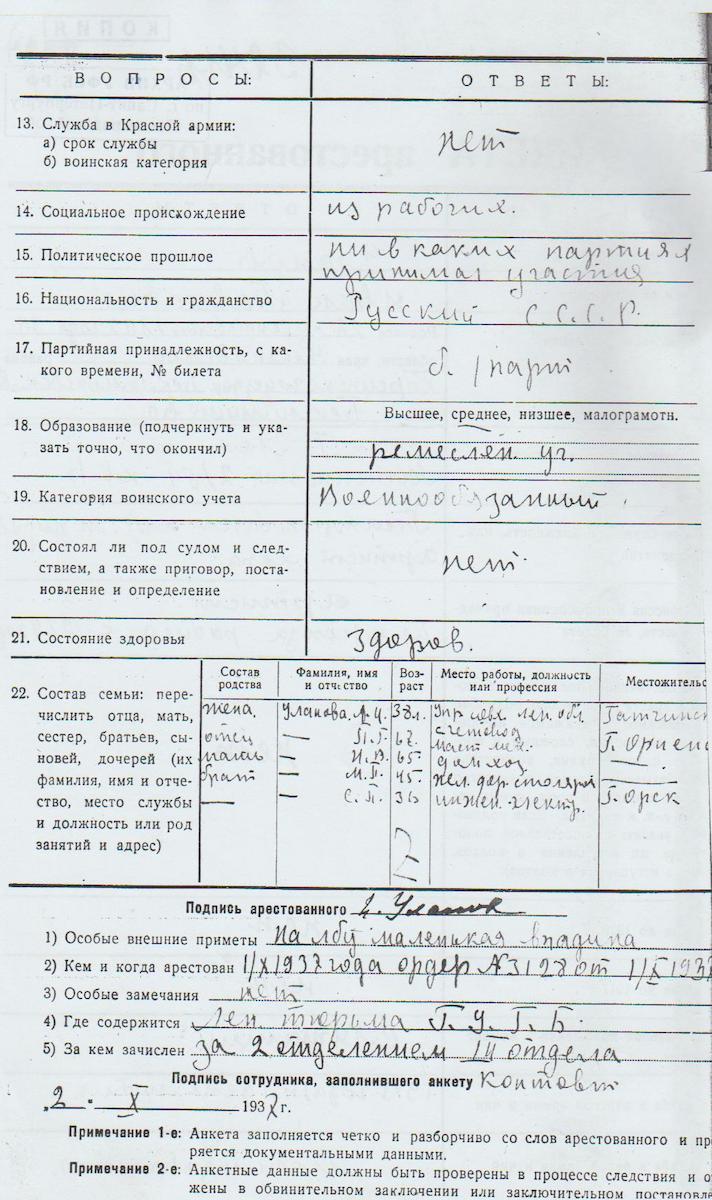 КОПИЯ
ВОПРОСЫ: ОТВЕТЫ:
13. Служба в Красной армии:
а) срок службы
б) воинская категория
нет
14. Социальное происхождение из рабочих.
15. Политическое прошлое ни в каких партиях
принимал участия
16. Национальность и гражданство Русский С.С.С.Р.
17. Партийная принадлежность, с ка-
кого времени, № билета
б. / парт
Высшее, среднее, низшее, малограмотн.
18. Образование (подчеркнуть и ука-
зать точно, что окончил)
ремеслен. уч.
19. Категория воинского учета Военнообязанный.
20. Состоял ли под судом и след-
ствием, а также приговор, поста-
новление и определение
нет.
21. Состояние здоровья Здоров.
22. Состав семьи: пере-
числить отца, мать,
сестер, братьев, сы-
новей, дочерей (их
фамилия, имя и отче-
ство, место службы
и должность или род
занятий и адрес)
Состав родства Фамилия, имя и отчество Воз-раст Место работы, должность или профессия Местожительс
жена. Уланова 38 л. Упр. Лен. обл. счетовод Гатчинск
отец — П. 6 Г.
мать — 65 дом. хоз. —
брат — М. П. 45. жел. дор. столяр
— С. П. 36 инжен. электр. Г. Орск
Подпись арестованного Уланов
1) Особые внешние приметы На лбу маленькая впадина
2) Кем и когда арестован 1/X 1937 года ордер № 3128 от 1/X 1937
3) Особые замечания нет
4) Где содержится Лен. тюрьма Г.У.Г.Б.
5) За кем зачислен за 2 отделением III отдела
Подпись сотрудника, заполнившего анкету
„2" X 1937 г.
Примечание 1-е: Анкета заполняется четко и разборчиво со слов арестованного и про
ряется документальными данными.
Примечание 2-е: Анкетные данные должны быть проверены в процессе следствия и о
жены в обвинительном заключении или заключительном постановл